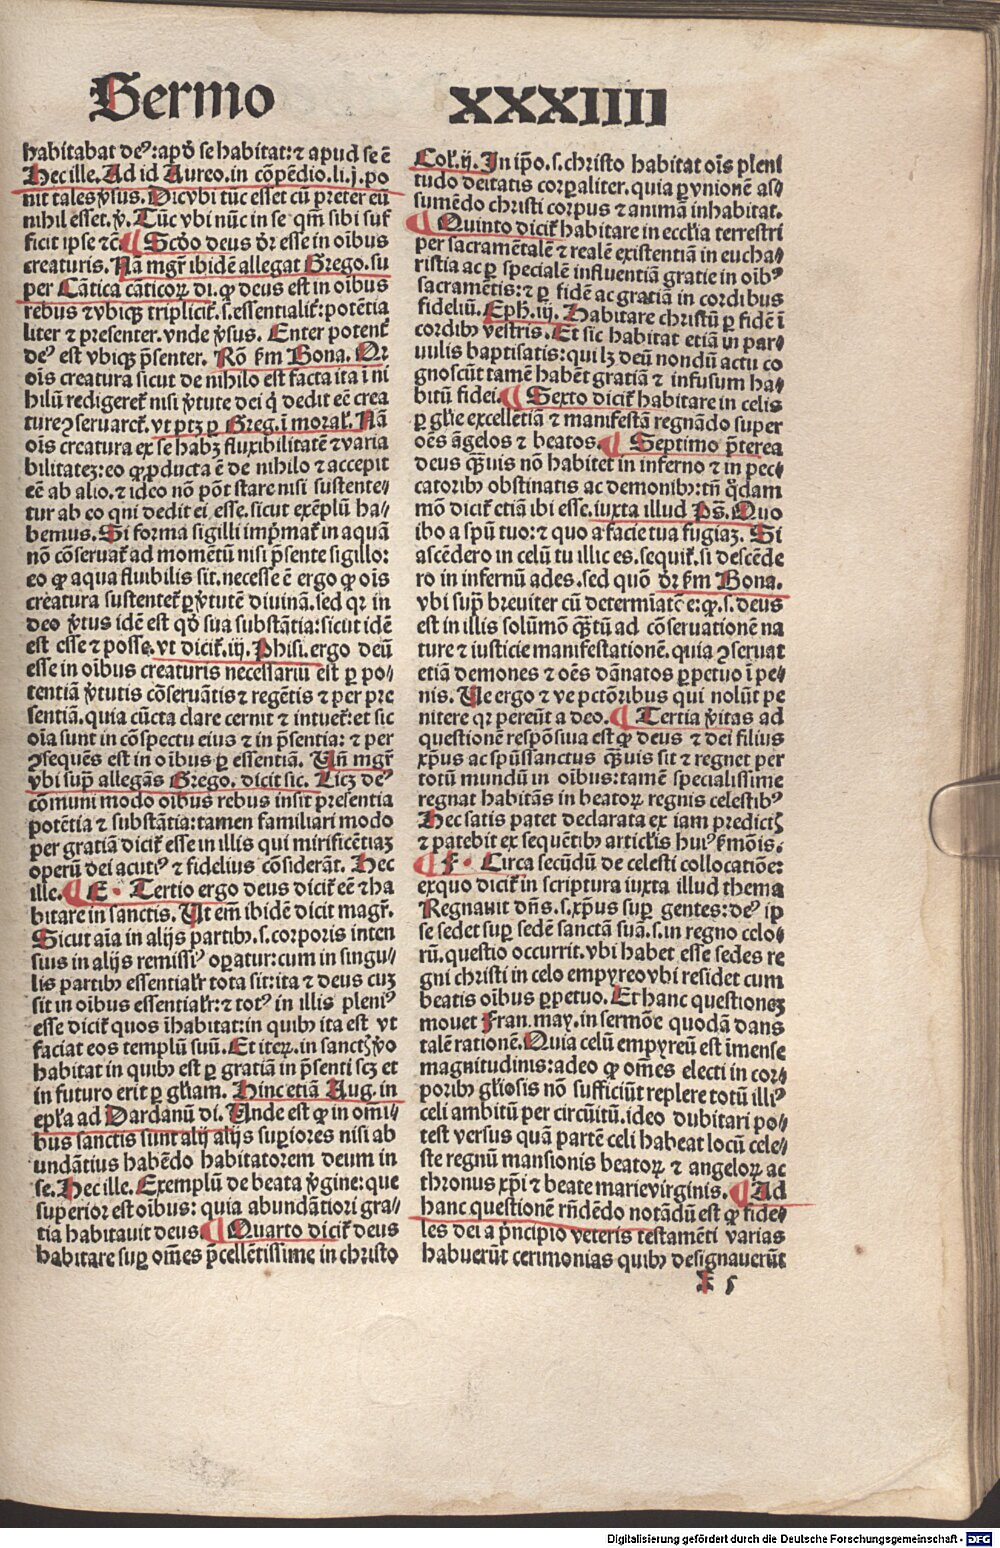 Sermo XXXIIII
habitabat deꝰ: apd̄ se habitat: ⁊ apud se ē
Hec ille. Ad id Aureo. in cōpēdio. li. j. po
nit tales v̄sus. Dic vbi tūc esset cū preter eū
nihil esset. v̄. Tūc vbi nūc in se qm̄ sibi suf
ficit ipse ⁊c̄. ¶ Scd̄o deus dr̄ esse in oībus
creaturis. Nā mgr̄ ibidē allegat Grego. su
per Cātica cāticoꝝ di. ꝙ deus est in oibus
rebus ⁊ vbiqꝫ triplicit̄. s. essentialit̄: potētia
liter ⁊ presenter. vnde v̄sus. Enter potent̄
deꝰ est vbiqꝫ p̄senter. Rō ẜm Bona. Qr
oīs creatura sicut de nihilo est facta ita ī ni
hilū redigeret̄ nisi v̄tute dei q̄ dedit eē crea
ture ꝯseruaret̄. vt ptꝫ ꝑ Greg. ī moral̄. Nā
oīs creatura ex se habꝫ fluxibilitatē ⁊ varia
bilitateꝫ: eo ꝙ ꝓducta ē de nihilo ⁊ accepit
eē ab alio. ⁊ ideo nō pōt stare nisi sustente⸗
tur ab eo qui dedit ei esse. sicut exēplū ha⸗
bemus. Si forma sigilli imp̄mat̄ in aquā
nō cōseruat̄ ad momētū nisi p̄sente sigillo:
eo ꝙ aqua fluibilis sit. necesse ē ergo ꝙ oīs
creatura sustentet̄ ꝑ v̄tutē diuinā. sed qr in
deo v̄tus idē est qd̄ sua substātia: sicut idē
est esse ⁊ posse. vt dicit̄. iij. Phisi. ergo deū
esse in oībus creaturis necessariū est ꝑ po⸗
tentiā v̄tutis cōseruātis ⁊ regētis ⁊ per pre
sentiā. quia cūcta clare cernit ⁊ intuet̄: et sic
oīa sunt in cōspectu eius ⁊ in p̄sentia: ⁊ per
ꝯsequēs est in oībus ꝑ essentiā. Vn̄ mgr̄
vbi supꝭ allegās Grego. dicit sic. Licꝫ deꝰ
cōmuni modo oībus rebus insit presentia
potētia ⁊ substātia: tamen familiari modo
per gratiā dicit̄ esse in illis qui mirificētiaꝫ
operū dei acutiꝰ ⁊ fidelius cōsiderāt. Hec
ille. ¶ E. Tertio ergo deus dicit̄ eē ⁊ ha
bitare in sanctis. Vt em̄ ibidē dicit magr̄.
Sicut aīa in alijs partibꝫ. s. corporis inten
sius in alijs remissiꝰ oꝑatur: cum in singu⸗
lis partibꝫ essentialr̄ tota sit: ita ⁊ deus cuꝫ
sit in oībus essentialr̄: ⁊ totꝰ in illis pleniꝰ
esse dicit̄ quos īhabitat: in quibꝫ ita est vt
faciat eos templū suū. Et iteꝝ. in sanctꝭ v̄o
habitat in quibꝫ est ꝑ gratiā in p̄senti scꝫ et
in futuro erit ꝑ gl̄iam. Hinc etiā Aug. in
epl̄a ad Dardanū di. Vnde est ꝙ in omī⸗
bus sanctis sunt alij alijs suꝑiores nisi ab
undātius habēdo habitatorem deum in
se. Hec ille. Exemplū de beata v̄gine: que
superior est oībus: quia abundātiori gra⸗
tia habitauit deus. ¶ Quarto dicit̄ deus
habitare suꝑ om̄es p̄cellētissime in christo
Col̄. ij. In ip̄o. s. christo habitat oīs pleni
tudo deitatis corꝑaliter. quia ꝑ vnionē as⸗
sumēdo christi corpus ⁊ animā inhabitat.
¶ Quinto dicit̄ habitare in eccl̄ia terrestri
per sacramētalē ⁊ realē existentiā in eucha⸗
ristia ac ꝑ specialē influentiā gratie in oībꝰ
sacramētis: ⁊ ꝑ fidē ac gratiā in cordibus
fideliū. Eph. iij. Habitare christū ꝑ fidē ī
cordibꝫ vestris. Et sic habitat etiā in par⸗
uulis baptisatis: qui lꝫ deū nondū actu co
gnoscūt tamē habēt gratiā ⁊ infusum ha⸗
bitū fidei. ¶ Sexto dicit̄ habitare in celis
ꝑ gl̄ie excellētiā ⁊ manifestā regnādo super
oēs āgelos ⁊ beatos. ¶ Septimo p̄terea
deus qͣuis nō habitet in inferno ⁊ in pec⸗
catoribꝫ obstinatis ac demonibꝫ: tn̄ q̄dam
mō dicit̄ etiā ibi esse. iuxta illud Ps̄. Quo
ibo a spū tuo: ⁊ quo a facie tua fugiaꝫ. Si
ascēdero in celū tu illic es. sequit̄. si descēde
ro in infernū ades. sed quō dr̄ ẜm Bona.
vbi supꝭ breuiter cū determīatōe: ꝙ. s. deus
est in illis solūmō qͣtū ad cōseruationē na
ture ⁊ iusticie manifestationē. quia ꝯseruat
etiā demones ⁊ oēs dānatos ꝑpetuo ī pe⸗
nis. Ve ergo ⁊ ve pctōribus qui nolūt pe
nitere qr pereūt a deo. ¶ Tertia v̄itas ad
questionē respōsiua est ꝙ deus ⁊ dei filius
xp̄us ac spūssanctus qͣuis sit ⁊ regnet per
totū mundū in oībus: tamē specialissime
regnat habitās in beatoꝝ regnis celestibꝰ
Hec satis patet declarata ex iam predictꝭ
⁊ patebit ex sequētibꝫ articl̄is huiꝰ ẜmōis.
¶ F. Circa secūdū de celesti collocatiōe:
ex quo dicit̄ in scriptura iuxta illud thema
Regnauit dn̄s. s. xp̄us suꝑ gentes: deꝰ ip
se sedet suꝑ sedē sanctā suā. s. in regno celo⸗
rū. questio occurrit. vbi habet esse sedes re
gni christi in celo empyreo vbi residet cum
beatis oībus ꝑpetuo. Et hanc questioneꝫ
mouet Fran. may. in sermōe quodā dans
talē rationē. Quia celū empyreū est īmense
magnitudinis: adeo ꝙ om̄es electi in cor⸗
poribꝫ gl̄iosis nō sufficiūt replere totū illiꝰ
celi ambitū per circūitū. ideo dubitari po⸗
test versus quā partē celi habeat locū cele⸗
ste regnū mansionis beatoꝝ ⁊ angeloꝝ ac
thronus xp̄i ⁊ beate marie virginis. ¶ Ad
hanc questionē rn̄dēdo notādū est ꝙ fide⸗
les dei a p̄ncipio veteris testamēti varias
habuerūt cerimonias quibꝫ designauerūt